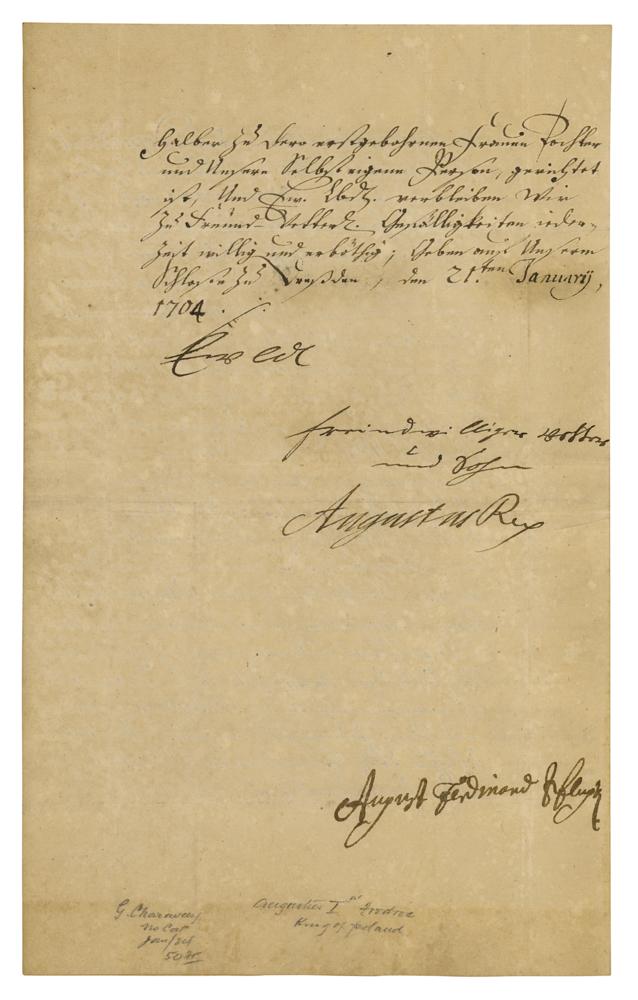 halber zu dero erstgebohrnen Frauen Tochter
und Unsere Selbsteigene Person, gerichtet
ist, Und Ew. Lbd. verbleiben Wir
zu Freünd-Vetterl. Gefälligkeiten ieder-
zeit willig und erböthig; Geben auf Unserm
Schloße zu Dreßden, den 21.ten January,
1704.
Ew Ld
freindwilliger Vetter
und Sohn
Augustus Rex
August Ferdinand Pflugk
G. Charavay
no Cat
Jan/24
50
Augustus I
King of Poland